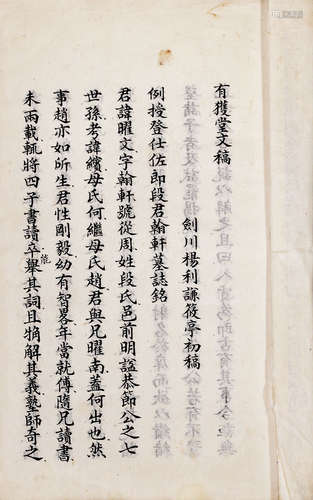 有獲堂文稿
劍川楊利謙筱亭初稿
例授登仕佐郎段君翰軒墓誌銘
君諱曜文字翰軒號從周姓段氏邑前明謚恭節公之七
世孫考諱繽母氏何繼母氏趙君與兄曜南蓋何出也然
事趙亦如所生君性剛毅幼有智畧年當就傅隨兄讀書
未兩載輒將四子書讀卒能舉其詞且觕解其義塾師奇之